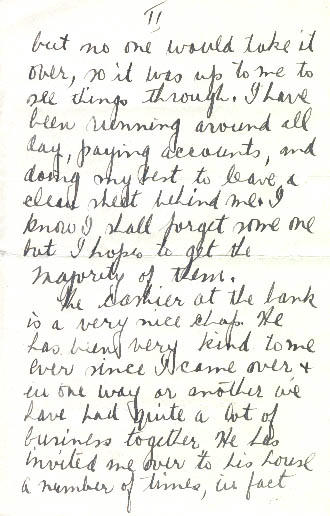 II
but no one would take it
over, so it was up to me to
see things through. I have
been running around all
day, paying accounts, and
doing my best to leave a
clean sheet behind me. I
know I shall forget some one
but I hope to get the
majority of them.
The cashier at the bank
is a very nice chap. He
has been very kind to me
ever since I came over +
in one way or another we
have had quite a lot of
business together. He has
invited me over to his house
a number of times, in fact